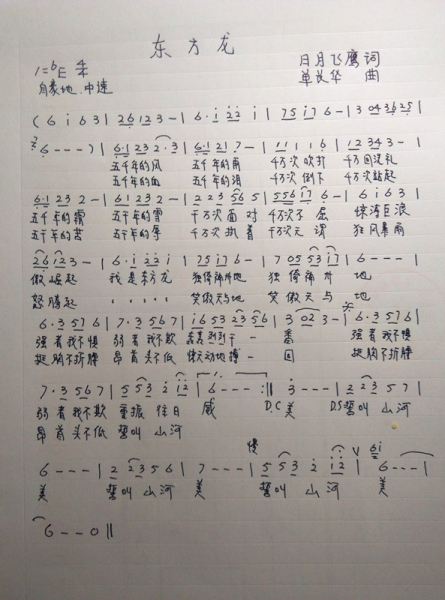 东方龙
1=♭E 4/4 日月飞鹰 词
自豪地.中速 单长华 曲
( 6 i 6 3 | 2 6 1 2 3 - | 6 · i 2 2 i | 7 5 i 7 6 - | 3 0 4 3 6 2 5 |
6 - - - ) | 6 · 1 2 3 2 · 3 | 6 · 1 2 1 7 · - | 1 1 1 1 6 | 1 2 3 4 3 - |
五千年的风 五千年的雨 千万次吹打 千万回洗礼
五千年的血 五千年的泪 千万次倒下 千万次站起
6 · 1 2 3 2 - | 6 · 1 2 3 2 - | 2 2 3 5 6 5 | 5 5 6 i 7 6 - | 6 i 6 3 |
五千年的霜 五千年的雪 千万次面对 千万次不屈 惊涛巨浪
五千年的苦 五千年的 千万次执着 千万次无谓 狂风暴雨
2 6 1 2 3 - | 6 · i 2 2 i | 7 5 i 7 6 - | 7 0 5 5 3 i 7 | 6 - - - |
傲崛起 我是东方龙 独倚 地 独倚 地
怒腾起 · · · · · 笑傲天与地 笑傲天与地
6 · 3 5 7 6 | 7 · 3 5 6 7 | i 6 5 3 2 3 5 6 | 3 0 2 3 - | 6 · 3 5 7 6 |
强者我不惧 弱者我不欺 轰轰烈烈干一番 强者我不惧
挺胸不折腰 昂首头不低 惊天动地搏一回 挺胸不折腰
7 · 3 5 6 7 | 5 5 3 2 i 2 | 6 - - - :|| 3 - - - | 2 2 3 5 7 |
弱者我不欺 重振往日 威 D.C 美 D.S 誓叫山河
昂首头不低 誓叫山河
慢
6 - - - | 2 2 3 5 6 | 7 - - - | 5 5 3 2 i 2 | 6 - - - |
美 誓叫山河 美 誓叫山河 美
6 - - 0 ||